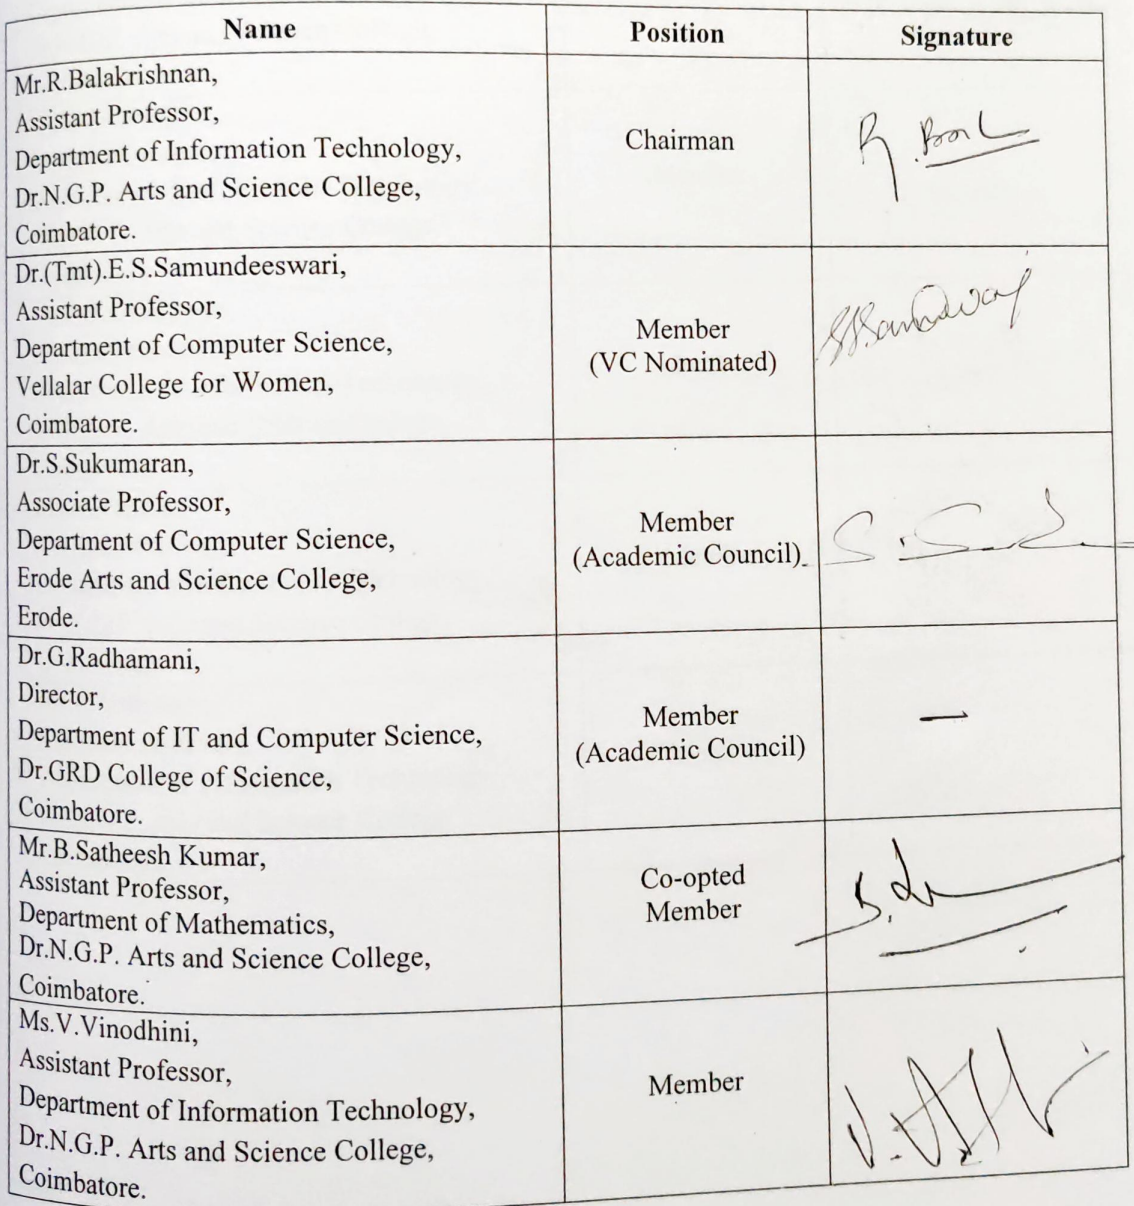 Name Position Signature
Mr.R.Balakrishnan,
Assistant Professor,
Department of Information Technology,
Dr.N.G.P. Arts and Science College,
Coimbatore.
Chairman
Dr.(Tmt).E.S.Samundeeswari,
Assistant Professor,
Department of Computer Science,
Vellalar College for Women,
Coimbatore.
Member
(VC Nominated)
Dr.S.Sukumaran,
Associate Professor,
Department of Computer Science,
Erode Arts and Science College,
Erode.
Member
(Academic Council)
Dr.G.Radhamani,
Director,
Department of IT and Computer Science,
Dr.GRD College of Science,
Coimbatore.
Member
(Academic Council)
—
Mr.B.Satheesh Kumar,
Assistant Professor,
Department of Mathematics,
Dr.N.G.P. Arts and Science College,
Coimbatore.
Co-opted
Member
Ms.V.Vinodhini,
Assistant Professor,
Department of Information Technology,
Dr.N.G.P. Arts and Science College,
Coimbatore.
Member